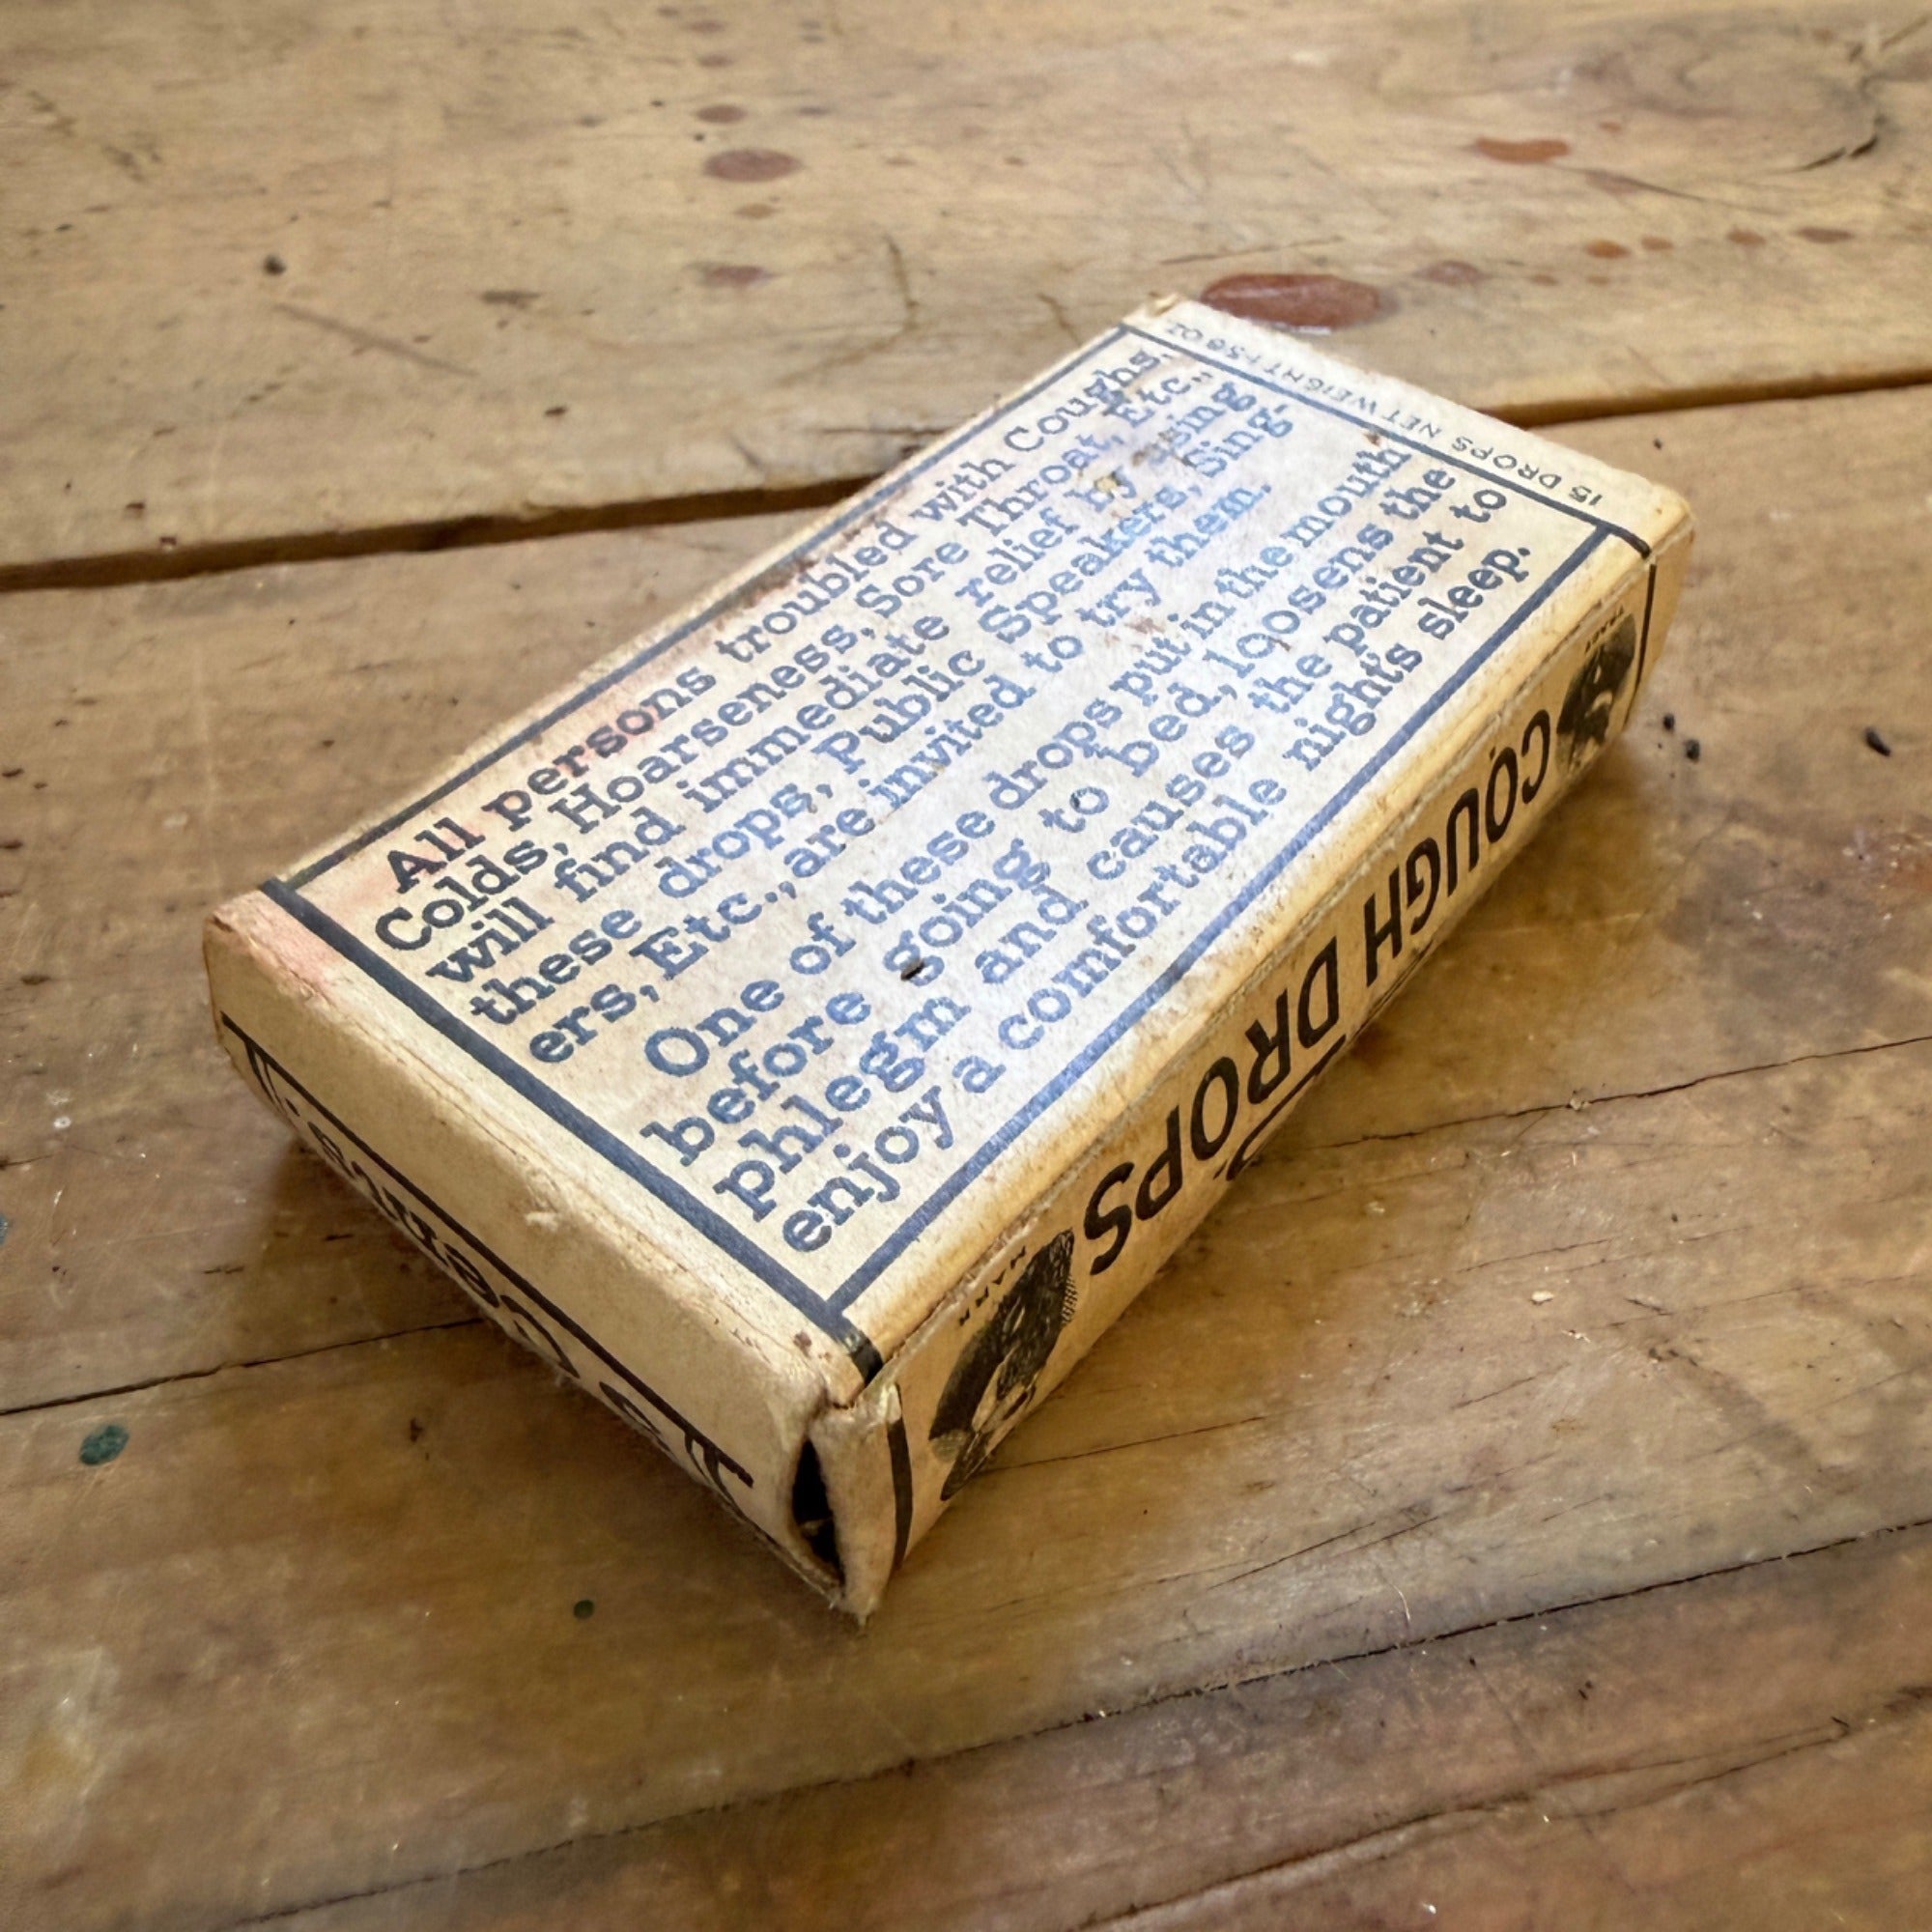 All persons troubled with Coughs,
Colds, Hoarseness, Sore Throat, Etc.,
will find immediate relief by using
these drops, Public Speakers, Sing-
ers, Etc., are invited to try them.
One of these drops put in the mouth
before going to bed, loosens the
phlegm and causes the patient to
enjoy a comfortable night's sleep.
15 DROPS NET WEIGHT 1.56 OZ
TRADE
COUGH DROPS
MARK